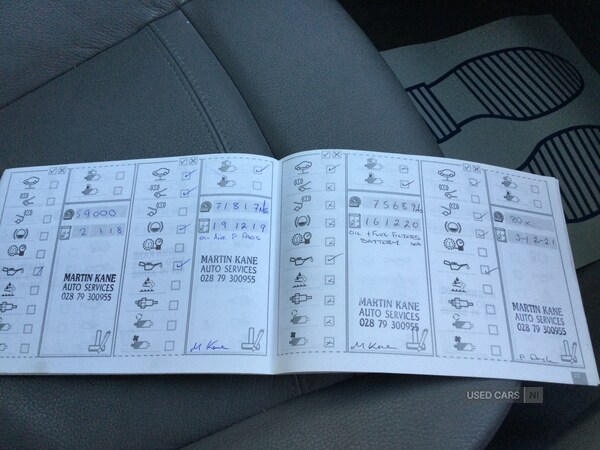 59000
2 11 8
MARTIN KANE
AUTO SERVICES
028 79 300955
71817
19 12 19
MARTIN KANE
AUTO SERVICES
028 79 300955
M Kane
75659
16 12 20
OIL + FUEL FILTERS
BATTERY
MARTIN KANE
AUTO SERVICES
028 79 300955
M Kane
80K
MARTIN KANE
AUTO SERVICES
028 79 300955
USED CARS NI